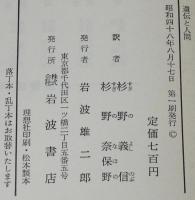 遺伝と人間
昭和四十八年八月十七日 第一刷発行 ©
定価七百円
訳者
杉野義信
すぎ の よし のぶ
杉野奈保野
すぎ の なほの
発行者 岩波雄二郎
東京都千代田区一ツ橋二丁目五番五号
発行所 岩波書店
理想社印刷・松本製本
落丁本・乱丁本はお取替いたします